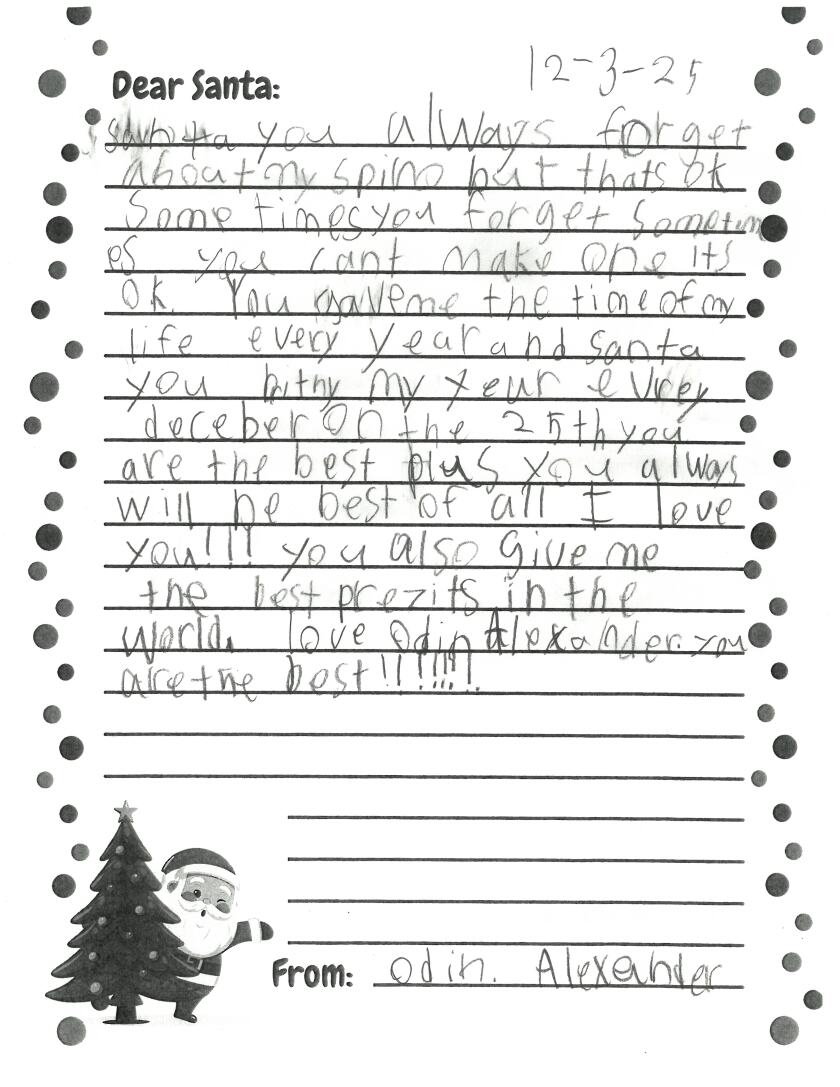 12-3-25
Dear Santa:
santa you always forget
about my spino but thats ok
Some times you forget sometim
es you cant make one its
ok. You gaveme the time of my
life every year and santa
you my year evrey
deceber on the 25th you
are the best plus you always
will be best of all I love
you!!! you also give me
the best prezits in the
world. love odin Alexander. you
are the best!!!!!!!.
From: odin. Alexander